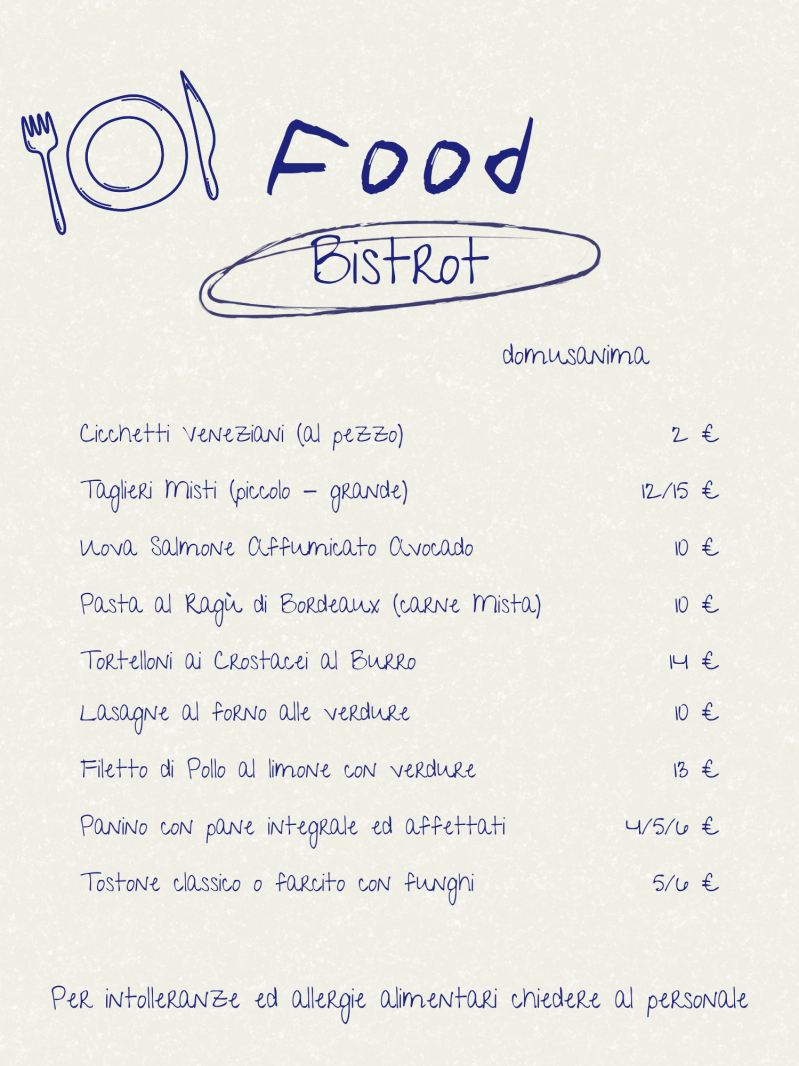 Food
Bistrot
domusanima
Cicchetti veneziani (al pezzo) 2 €
Taglieri Misti (piccolo - grande) 12/15 €
Uova Salmone Affumicato Avocado 10 €
Pasta al Ragù di Bordeaux (carne Mista) 10 €
Tortelloni ai Crostacei al Burro 14 €
Lasagne al forno alle verdure 10 €
Filetto di Pollo al limone con verdure 13 €
Panino con pane integrale ed affettati 4/5/6 €
Tostone classico o farcito con funghi 5/6 €
Per intolleranze ed allergie alimentari chiedere al personale